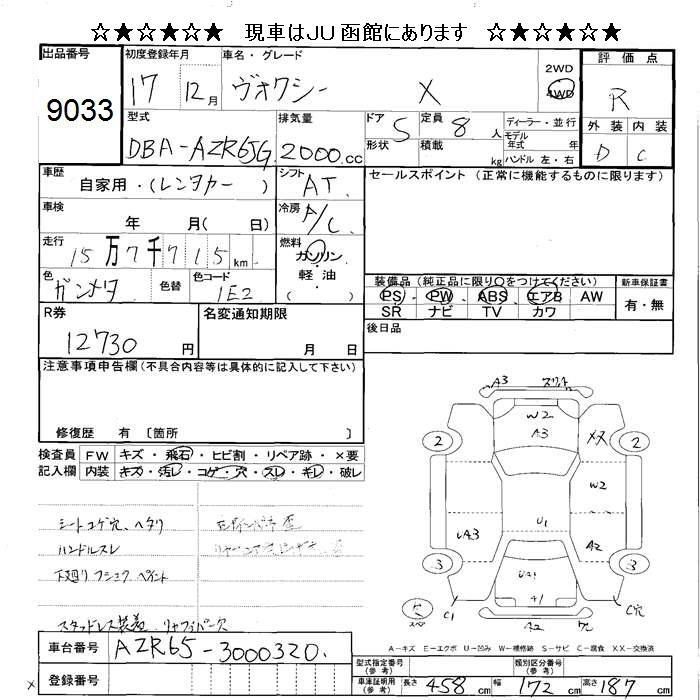 ☆★☆★☆ 現車はJU函館にあります ☆★☆★☆
出品番号 初度登録年月 車名・グレード 評価点
9033 17 12月 ヴォクシー X 2WD 4WD R
型式 排気量 ドア 定員 ディーラー・並行 外装 内装
DBA-AZR65G 2000cc 5 8人 モデル年式 年式
形状 積載 kg ハンドル 左・右 D C
車歴 自家用・(レンタカー ) シフト AT セールスポイント(正常に機能するものに限ります)
車検 年 月( 日) 冷房 A/C
走行 15万7千715km 燃料 ガソリン
色 ガンメタ 色替 色コード 1E2 軽油 ( ) 装備品(純正品に限り○をつけてください) 新車保証書
PS・PW・ABS・エアB AW 有・無
R券 名変通知期限 SR ナビ TV カワ
12730円 月 日 後日品
注意事項申告欄(不具合内容等は具体的に記入して下さい)
修復歴 有〔箇所 〕
検査員 FW キズ・飛石・ヒビ割・リペア跡・×要
記入欄 内装 キズ・汚レ・コゲ・穴・スレ・キレ・破レ
シートコゲ穴、ヘタリ
ハンドルスレ
下廻りフショク、ペイント
スタッドレス装着、リヤワイパー欠
A3
W2
A3
XX
2 2
W2
UA3 U1 A2
3 3
UA1
A1
C1 C穴
A2
A-キズ E-エクボ U-凹み W-補修跡 S-サビ C-腐食 XX-交換済
車台番号 AZR65-3000320
登録番号
型式指定番号(参考) 類別区分番号(参考)
車庫証明用(参考) 長さ 458cm 幅 172cm 高さ 187cm